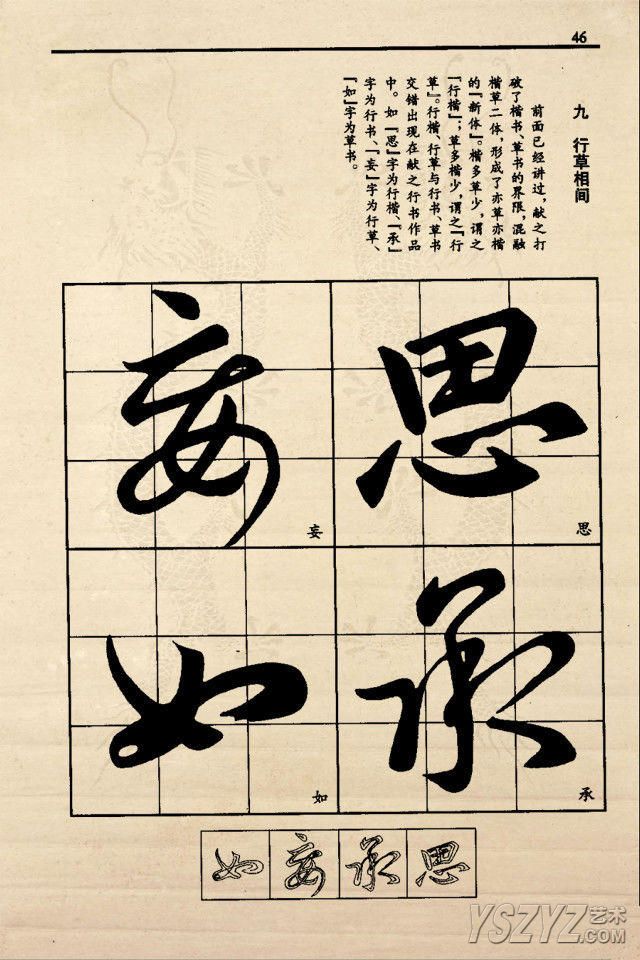 46
九 行草相间
前面已经讲过，献之打
破了楷书、草书的界限，混融
楷草二体，形成了亦草亦楷
的『新体』。楷多草少，谓之
『行楷』；草多楷少，谓之『行
草』。行楷、行草与行书、草书
交错出现在献之行书作品
中。如『思』字为行楷、『承』
字为行书、『妄』字为行草、
『如』字为草书。
思
思
承
承
妄
妄
如
如
思承妄如
YSZYZ艺术
.COM